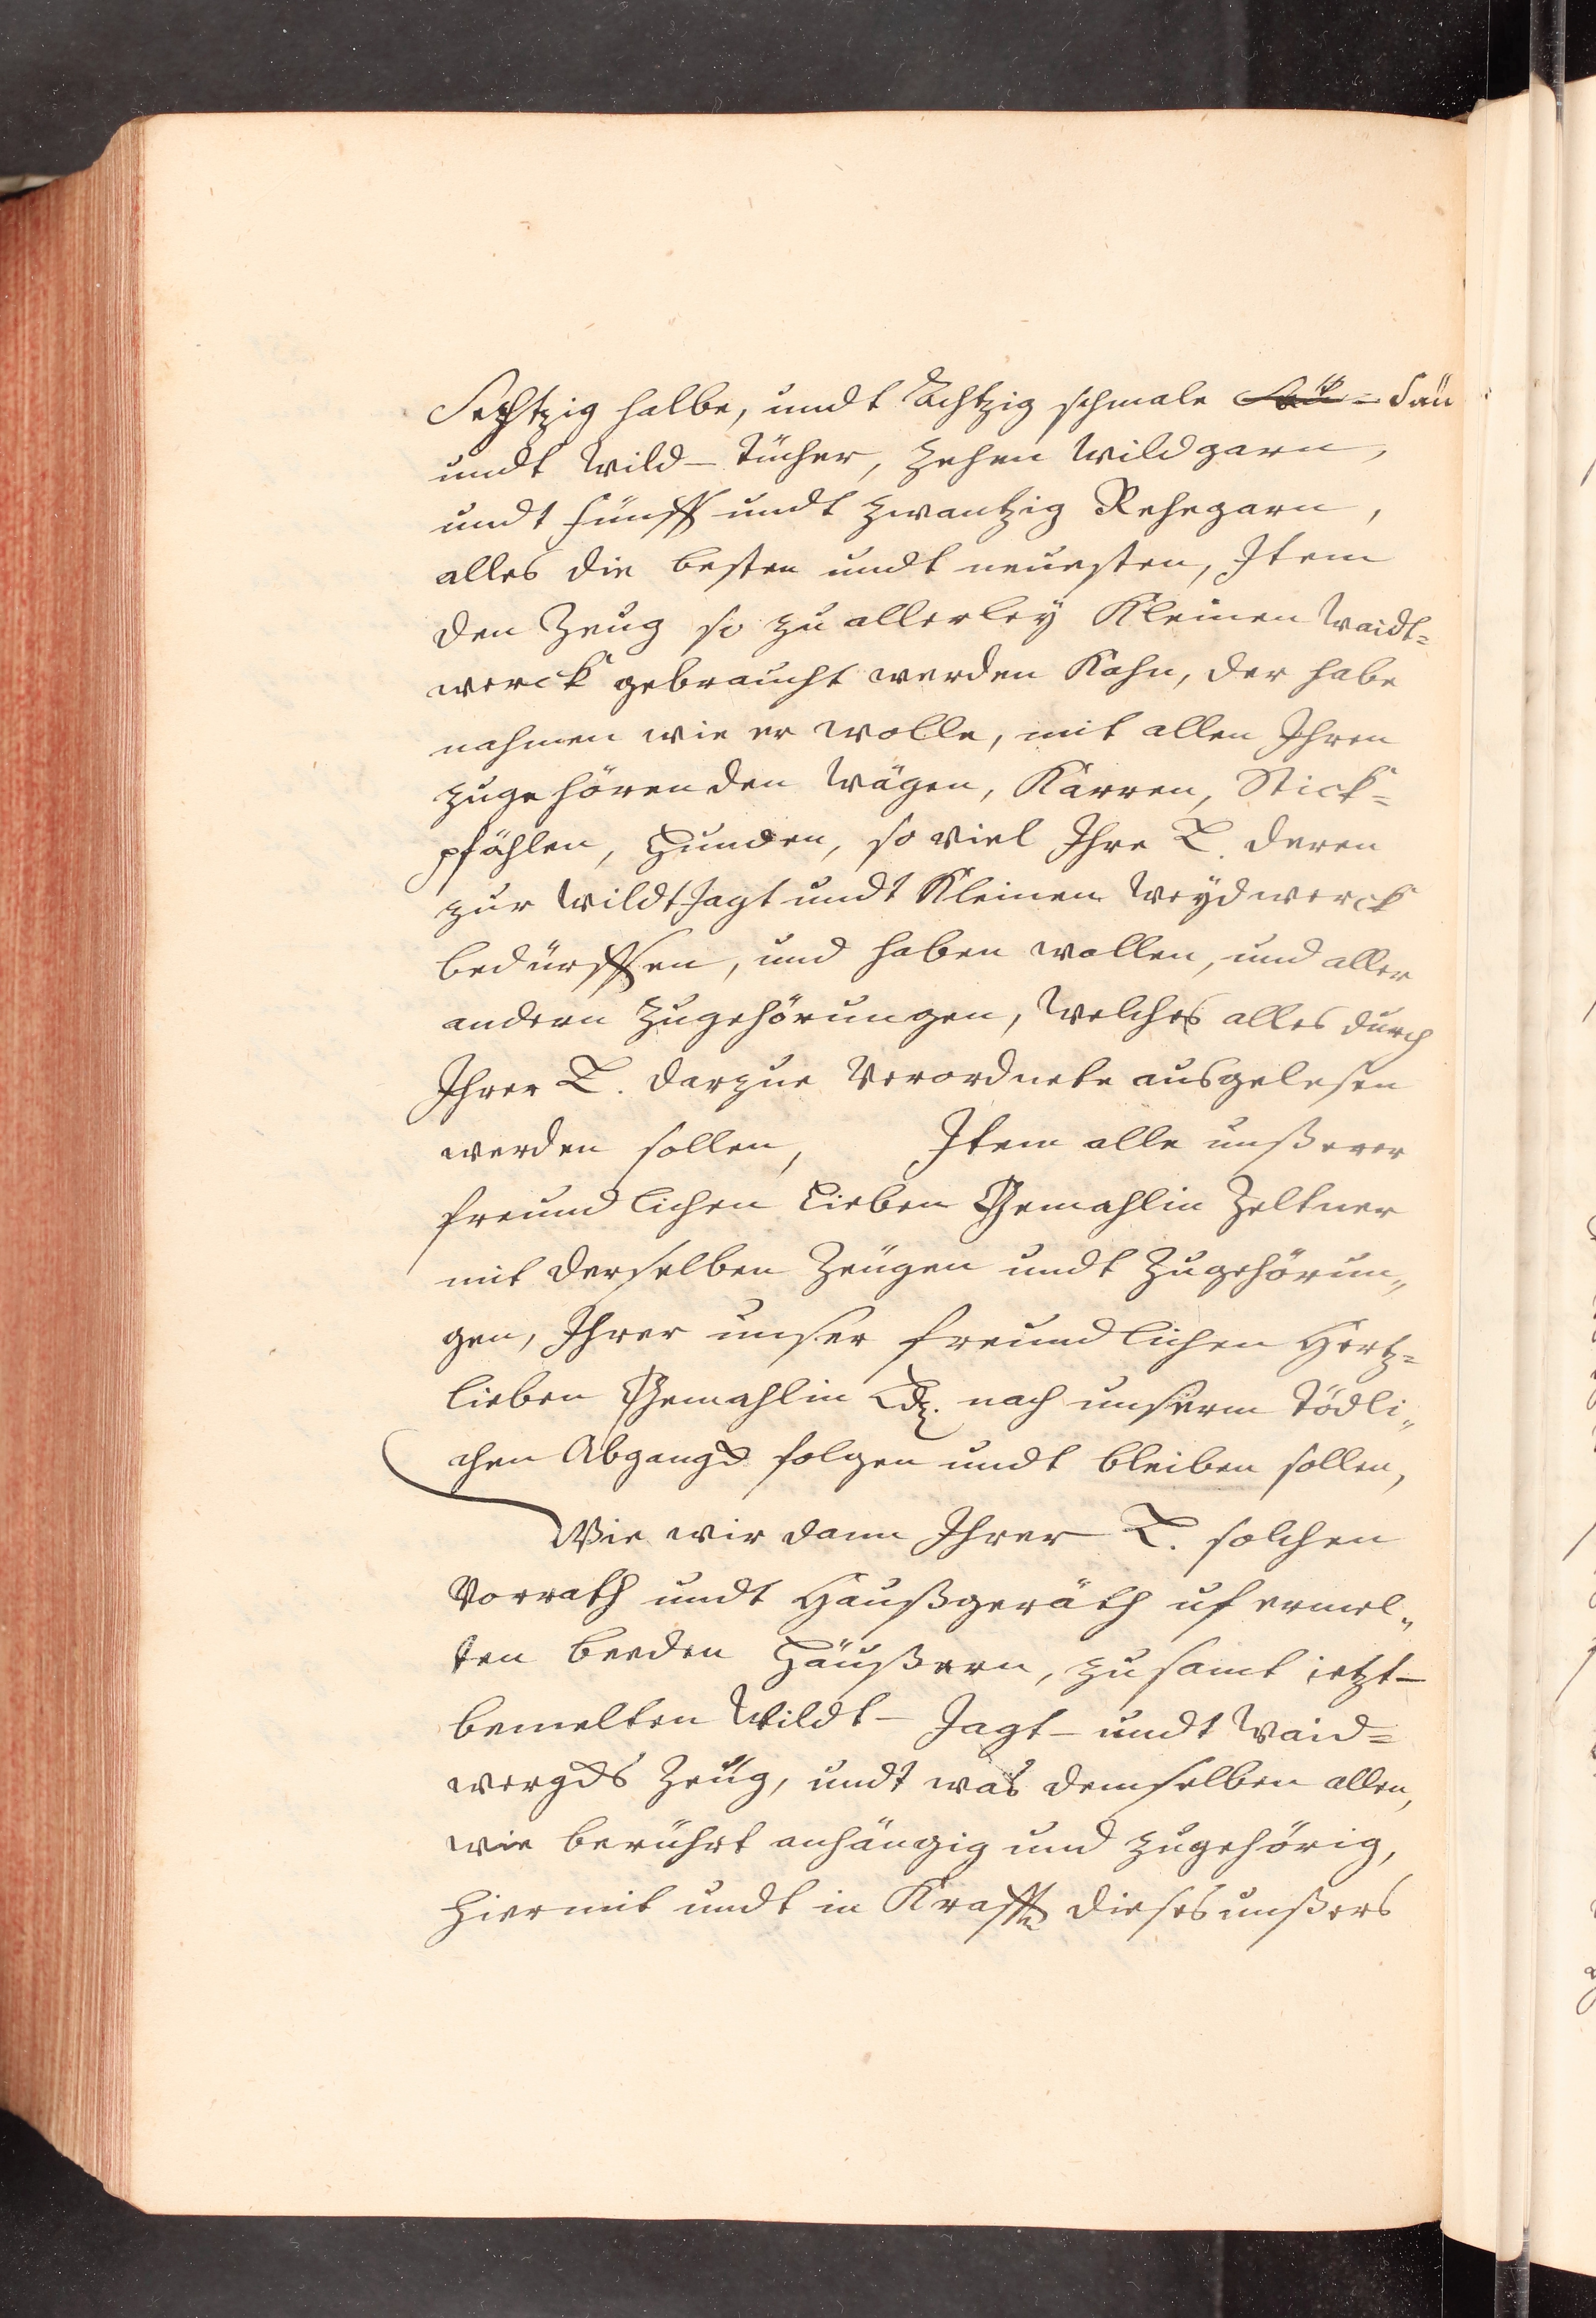 Sechtzig halbe, undt Achtzig schmale Säü
undt Wild-Tücher, zehen Wildgarn,
undt fünff undt zwantzig Rehegarn,
alles die besten undt neuesten, Item
den Zeug so zu allerley Kleinen Waidt=
werck gebraucht werden Kahn, der habe
nahmen wie er wolle, mit allen Ihren
zugehörenden Wägen, Kärren, Stick=
pfählen, Hunden, so viel Ihre L. deren
zur WildtJagt undt Kleinen Weydwerck
bedürffen, und haben wollen, und aller
andern zugehörungen, Welches alles durch
Ihrer L. darzue Verordnete ausgelesen
werden sollen, Item alle unßerer
freundlichen Lieben Gemahlin Zeltner
mit derselben Zeügen undt Zugehörun„
gen, Ihrer unser freundlichen Hertz=
lieben Gemahlin Ld. nach unserm tödli„
chen Abgangk folgen undt bleiben sollen,
Wie wir dann Ihrer L. solchen
Vorrath undt Haußgeräth uf ermel„
ten beeden Häußern, zusamt ietzt-
bemelten Wildt- Jagt- undt Waid=
wergks Zeüg, undt was demselben allen,
wie berührt anhängig und zugehörig,
hiermit undt in Krafft dieses unßers